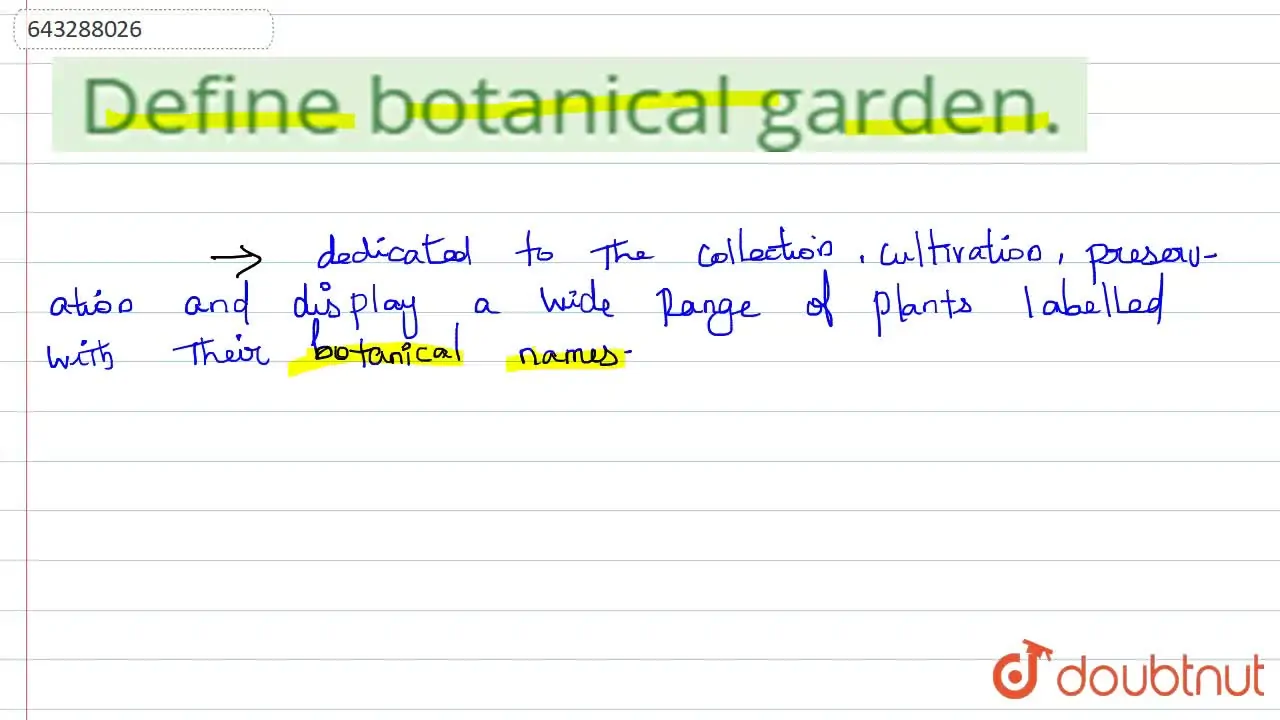 643288026
Define botanical garden.
→ dedicated to the collection, cultivation, preserv-
ation and display a wide Range of plants labelled
with their botanical names.
doubtnut